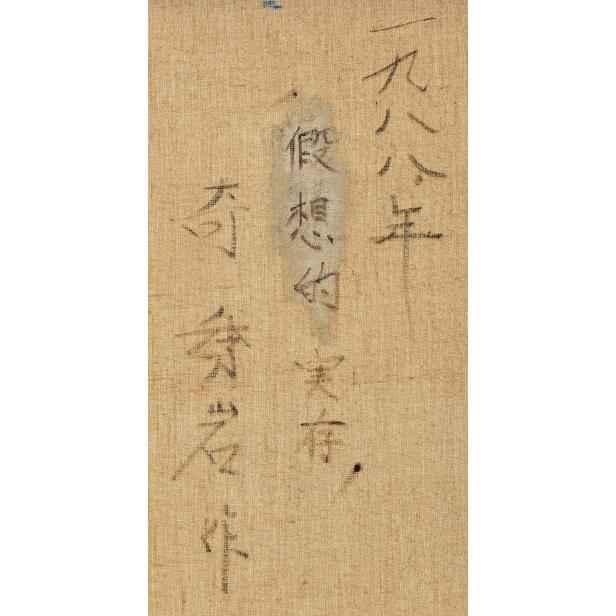 一九八八年
假想的実存,
奇秀岩作